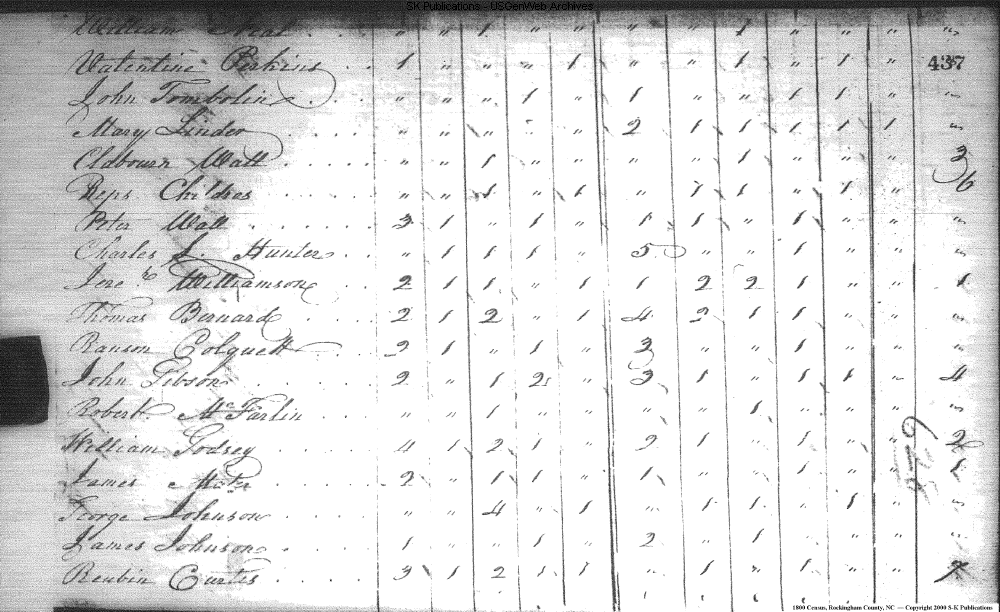 SK Publications - USGenWeb Archives
William " " 1 " " " " 1 " " " "
Valentine Perkins 1 " " " 1 " " 1 " 1 " "
437
John Tombolin " " " 1 " 1 " " 1 1 " "
Mary Linder " " " " 2 1 1 1 1 1 "
Clabourn Wall " " 1 " " " " 1 " " " 3
Reps Childres " " 1 " 1 " 1 1 " 1 " 6
Peter Wall 3 1 " 1 " 1 1 " 1 " " "
Charles L. Hunter " 1 1 1 " 5 " " 1 " " "
Jere Williamson 2 1 1 " 1 1 2 2 1 " " 1
Thomas Bernard 2 1 2 " 1 4 2 1 1 " " "
Ranson Colquett 2 1 " 1 " 3 " " 1 " " "
John Gibson 2 " 1 2 " 3 1 " 1 1 " 4
Robert McFarlin " " 1 " " " " 1 " " " "
William Godsey 4 1 2 1 " 2 1 " 1 " " 2
James 2 " 1 1 " 1 " 1 " " "
George Johnson " " 4 " 1 " 1 1 " 1 " "
James Johnson 1 " " 1 " 2 " 1 " " " "
Reubin Curtis 3 1 2 1 1 " 1 " 1 " " 7
1800 Census, Rockingham County, NC — Copyright 2000 S-K Publications